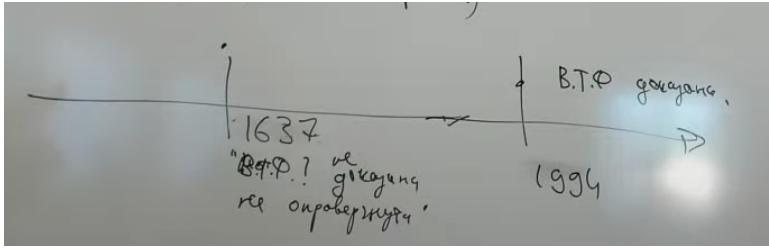 В.Т.Ф доказана.
1637
1994
"В.Т.Ф.? не
доказана
не опровергнута"